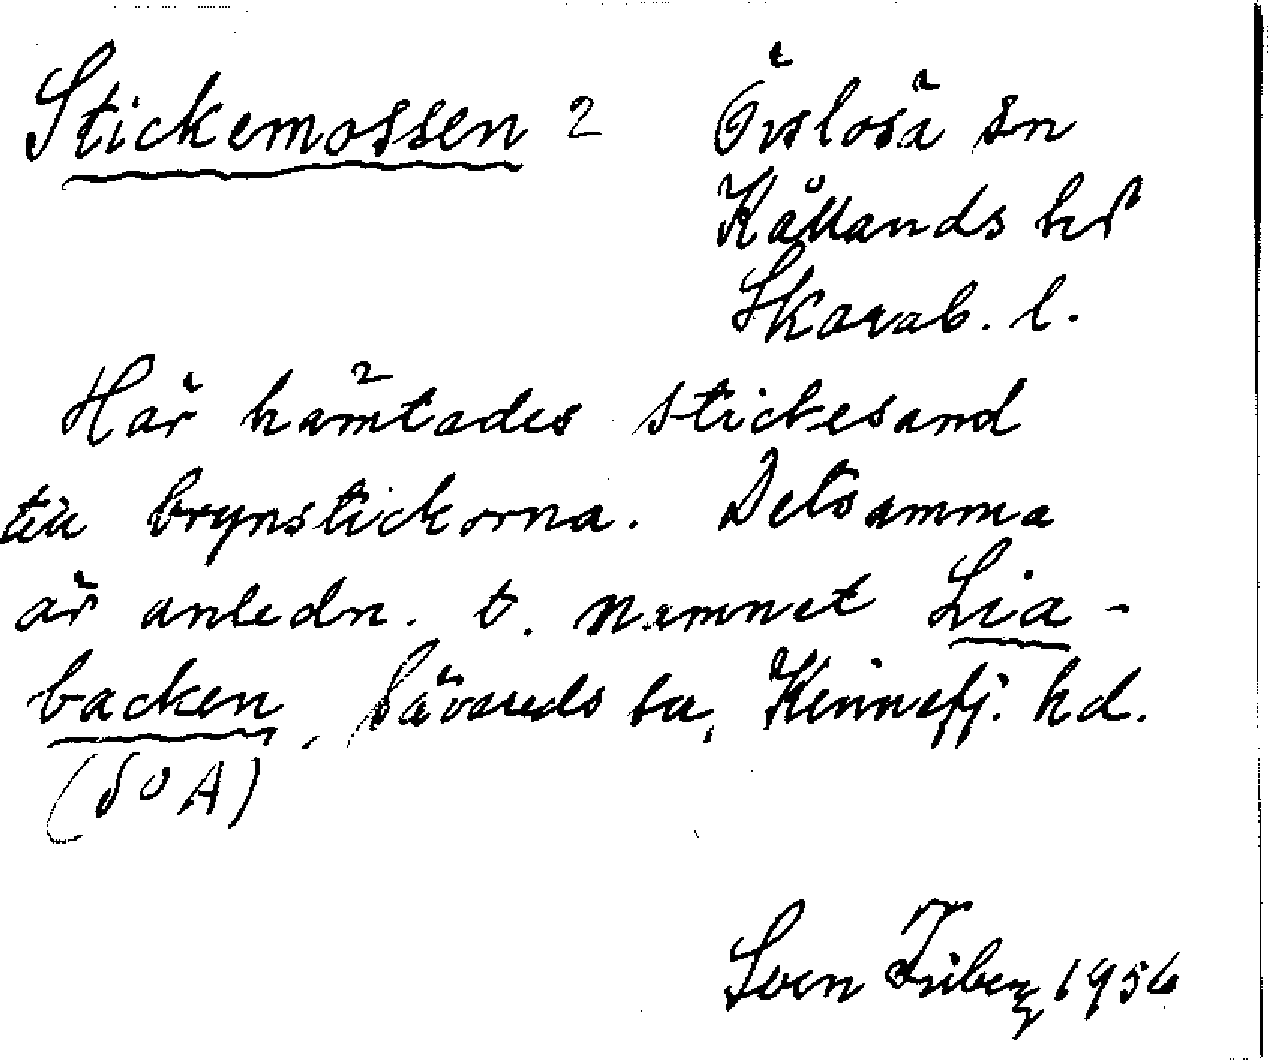 Stickemossen 2 Övslösä sn
Kållands hd
Skarab. l.
Här hämtades stickesand
till brynstickorna. Detsamma
är anledn. t. namnet Lia-
backen, Sävareds by, Kinnefj. hd.
(SOA)
Sven Friberg 1956